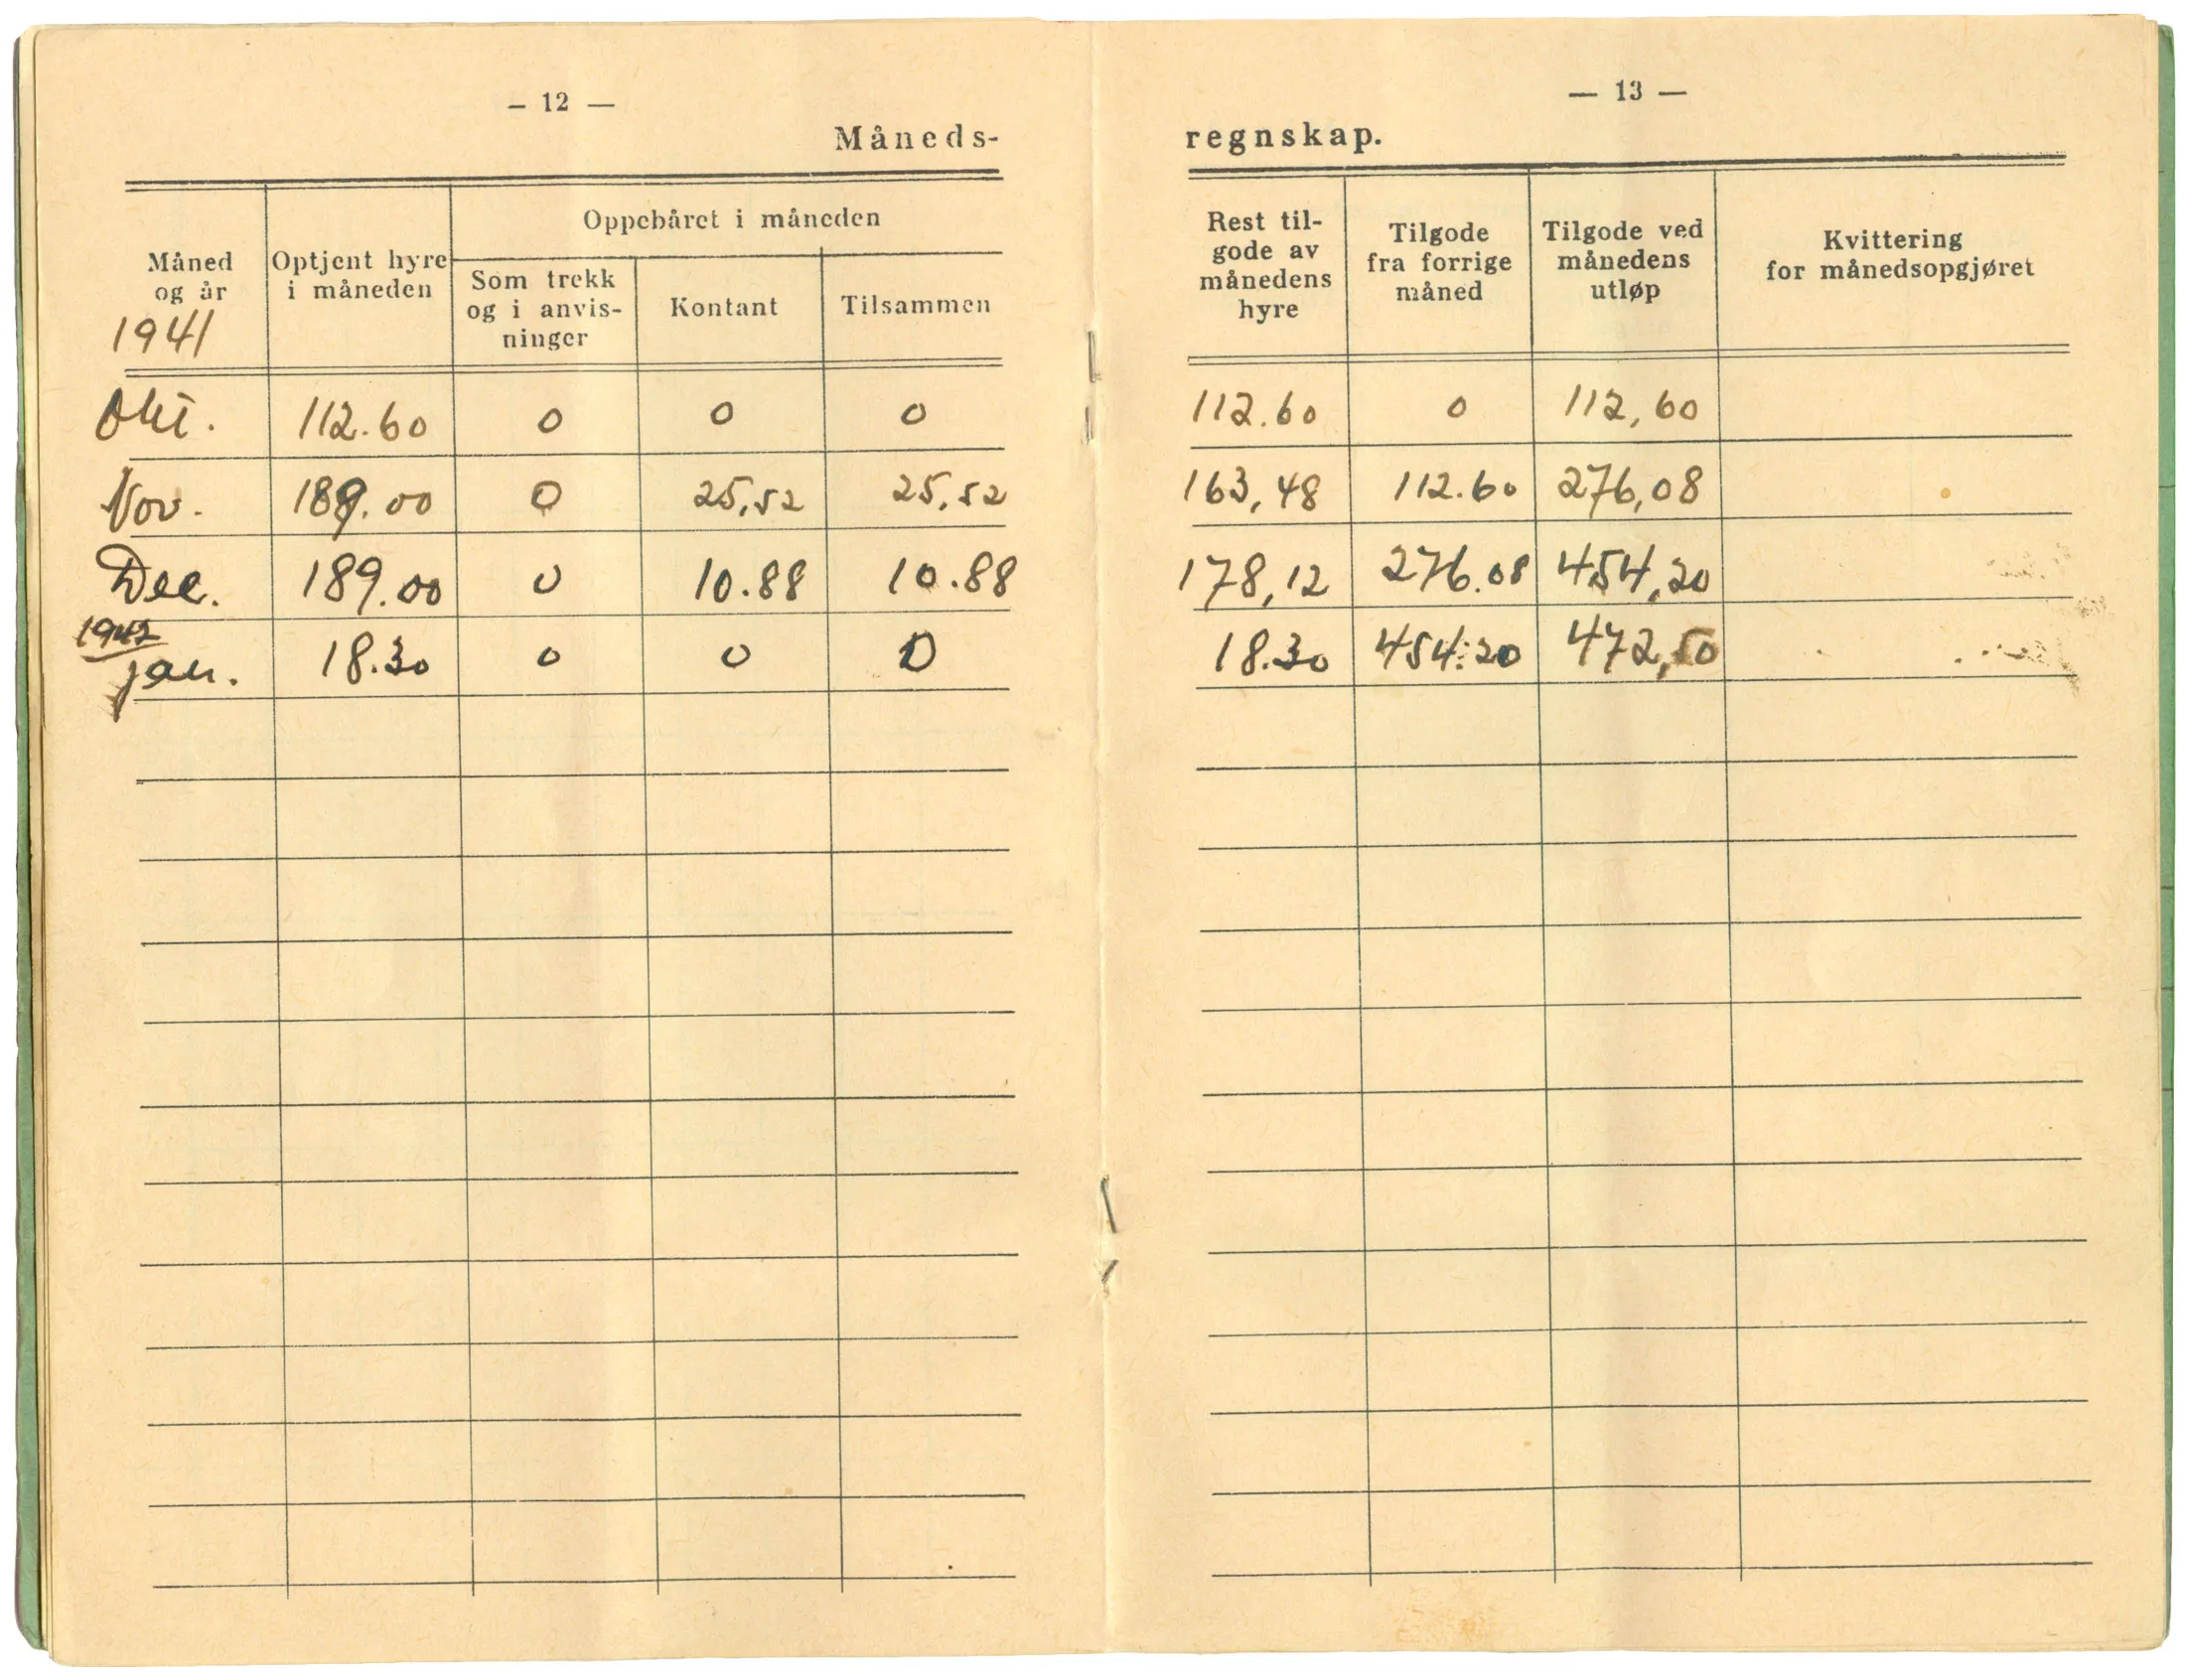 – 12 —
Måneds-
Måned
og år
1941
Optjent hyre
i måneden
Oppebåret i måneden
Som trekk
og i anvis-
ninger
Kontant
Tilsammen
Okt. 112.60 0 0 0
Nov. 189.00 0 25,52 25,52
Dec. 189.00 0 10.88 10.88
1942
jan. 18.30 0 0 0
— 13 —
regnskap.
Rest til-
gode av
månedens
hyre
Tilgode
fra forrige
måned
Tilgode ved
månedens
utløp
Kvittering
for månedsopgjøret
112.60 0 112,60
163,48 112.60 276,08
178,12 276.08 454,20
18.30 454.20 472,50